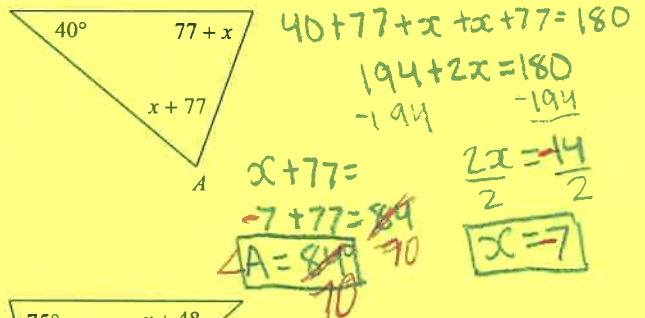 40° 77 + x
x + 77
A
40+77+x+x+77=180
194+2x=180
-194 -194
2x=-14
2 2
x=-7
x+77=
-7+77=84
70
∠A=84°
70
75° x + 48